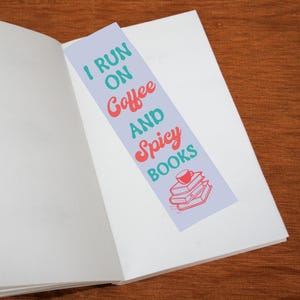 I RUN
ON
Coffee
AND
Spicy
BOOKS